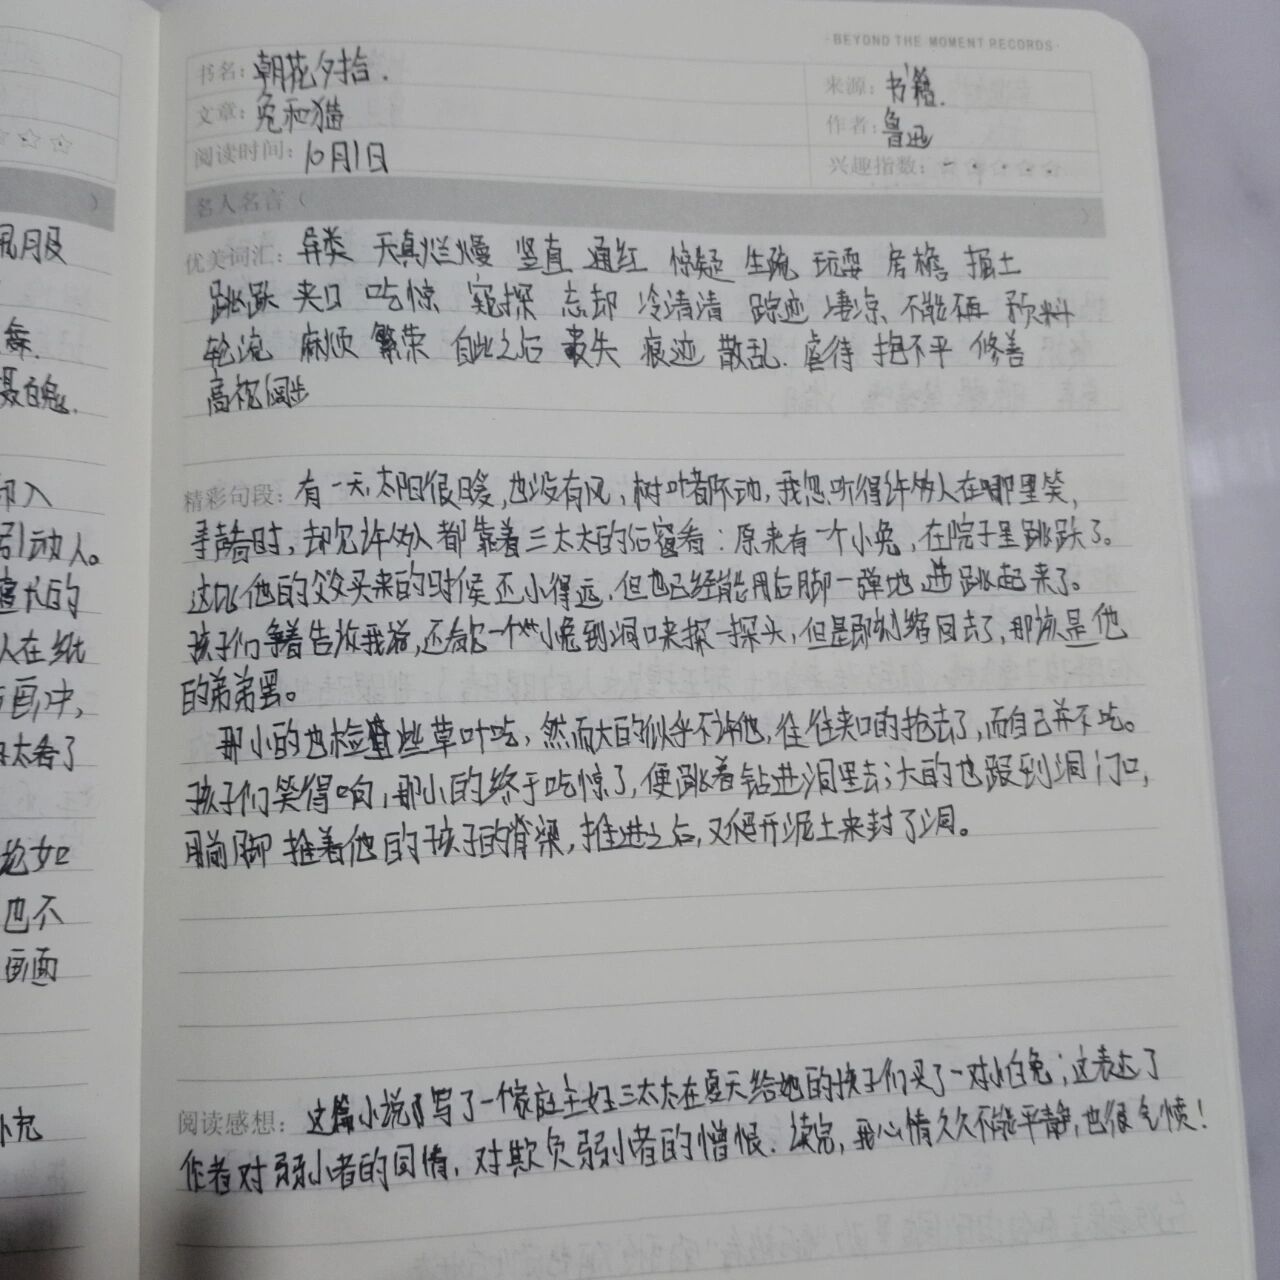 ·BEYOND THE MOMENT RECORDS·
书名：朝花夕拾.
来源：书籍.
文章：兔和猫
作者：鲁迅
阅读时间：10月1日
兴趣指数：☆☆☆☆☆
名人名言（ ）
优美词汇：异类 天真烂熳 竖直 通红 惊疑 生疏 玩耍 房檐 掘土
跳跃 夹口 吃惊 窥探 忘却 冷清清 踪迹 凄凉 不能再 预料
轮流 麻烦 繁荣 自此之后 丧失 痕迹 散乱. 虐待 抱不平 修善
高视阔步
精彩句段：有一天，太阳很暖，也没有风，树叶都不动，我忽听得许多人在哪里笑，
寻声看时，却见许多人都靠着三太太的后窗看：原来有一个小兔，在院子里跳跃了。
这比他的父母买来的时候还小得远，但也已经能用后脚一弹地，迸跳起来了。
孩子们争着告诉我说，还看见一个小兔到洞口来探一探头，但是即刻缩回去了，那该是他
的弟弟罢。
那小的也检些草叶吃，然而大的似乎不许他，往往夹口的抢去了，而自己并不吃。
孩子们笑得响，那小的终于吃惊了，便跳着钻进洞里去；大的也跟到洞门口，
用前脚推着他的孩子的脊梁，推进之后，又爬开泥土来封了洞。
阅读感想：这篇小说写了一个家庭主妇三太太在夏天给她的孩子们买了一对小白兔；这表达了
作者对弱小者的同情，对欺负弱小者的憎恨. 读完，我心情久久不能平静，也很气愤！